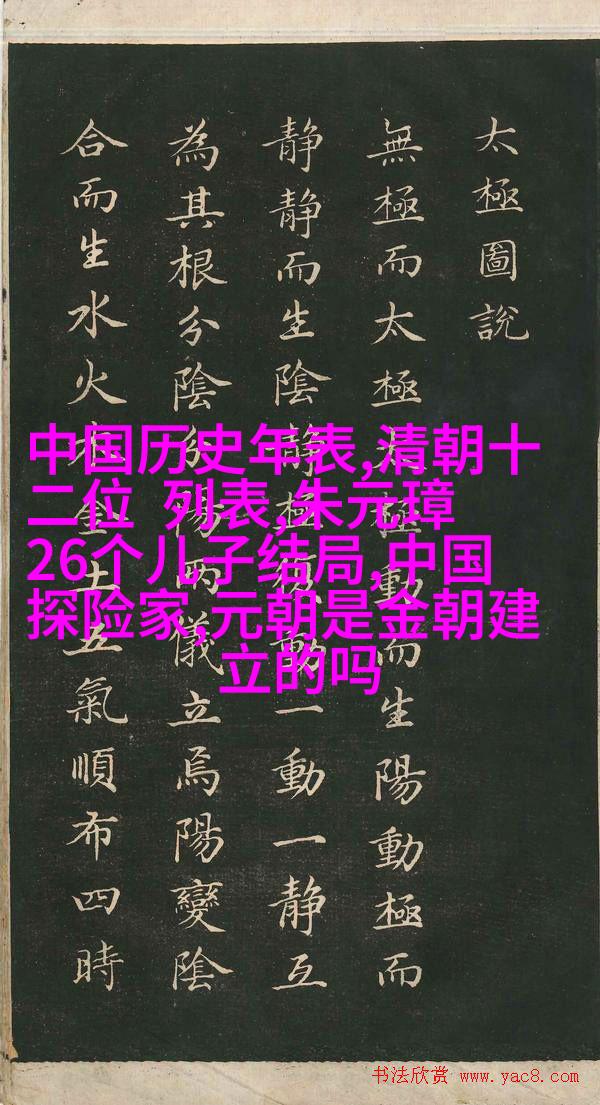 太極圖說
無極而太極太極動而生陽動極而
静静而生陰静極復動一動一静互
為其根分陰分陽兩儀立焉陽變陰
合而生水火木金土五氣順布四時
中国历史年表,清朝十
二位 列表,朱元璋
26个儿子结局,中国
探险家,元朝是金朝建
立的吗
书法欣赏 www.yac8.com